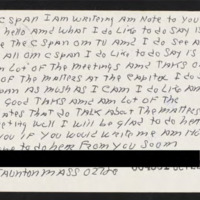 CSPAN I AM WRITING AM NOTE TO YOU
hello AND WHAT I do LIKE to do SAY IS
THE CSPAN ON TU AND I do SEE A
All ON CSPAN I do LIKE to do SAY
AM LOT OF THE MEETINGS AND TAKS O
OF THE MATTERS AT THE CAPITOL I do
AS MUSH AS I CAM I do LIKE AM
GOOD THAKS AND AM LOT OF THE
ATES THAT do TALK ABOUT THE MATTE
ETING WEll I WIll BE GLAD to do HEA
YOU IF YOU WOULD WRITE ME AM
to do HEAR FROM YOU SOOM
AUNTON MASS 02780